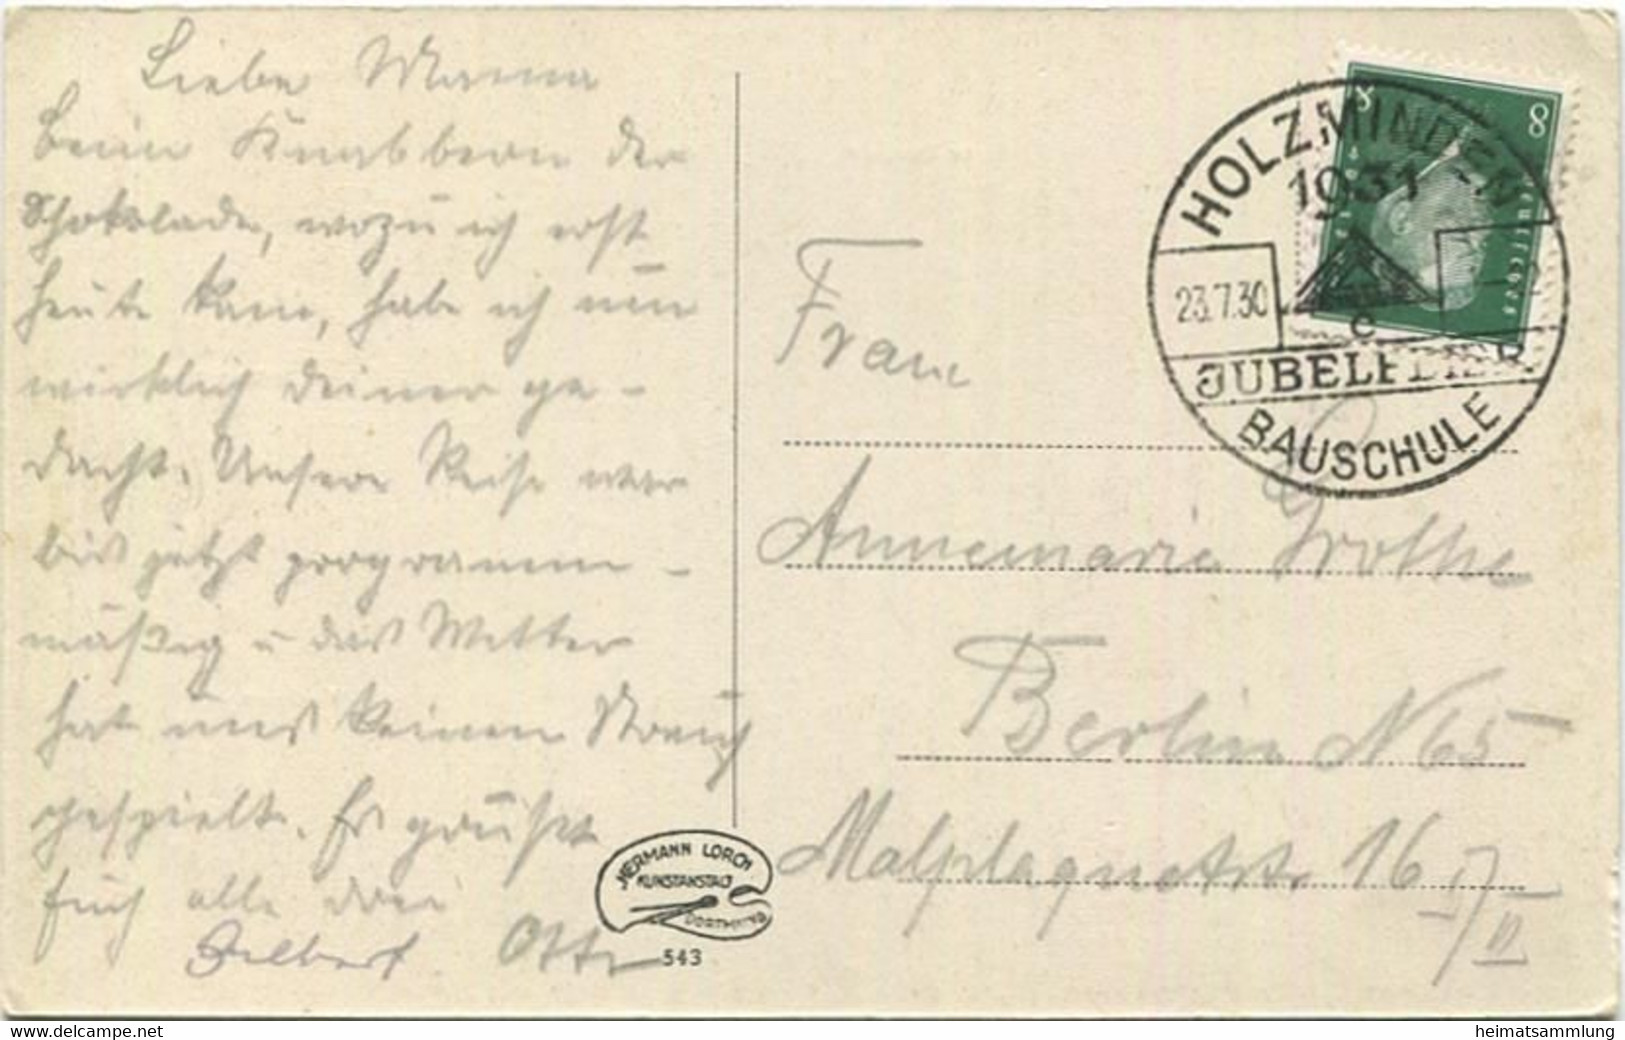 Liebe Mama
Beim Knabbern der
Schokolade, wozu ich erst
heute kam, habe ich nun
wirklich Deiner ge-
dacht. Unsere Reise war
bis jetzt programm-
mäßig u das Wetter
hat uns keinen Streich
gespielt. Es grüßt
Euch alle drei
Otto
HERMANN LORCH
KUNSTANSTALT
DORTMUND
543
8 8
HOLZMINDEN
1931
23.7.30
JUBELFEIER
BAUSCHULE
Frau
Annemarie Grothe
Berlin N 65
Malplaquetstr. 16 I/II
www.delcampe.net
heimatsammlung